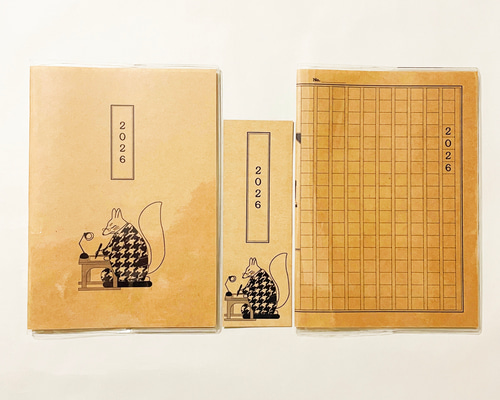 2026
2026
No.
2026